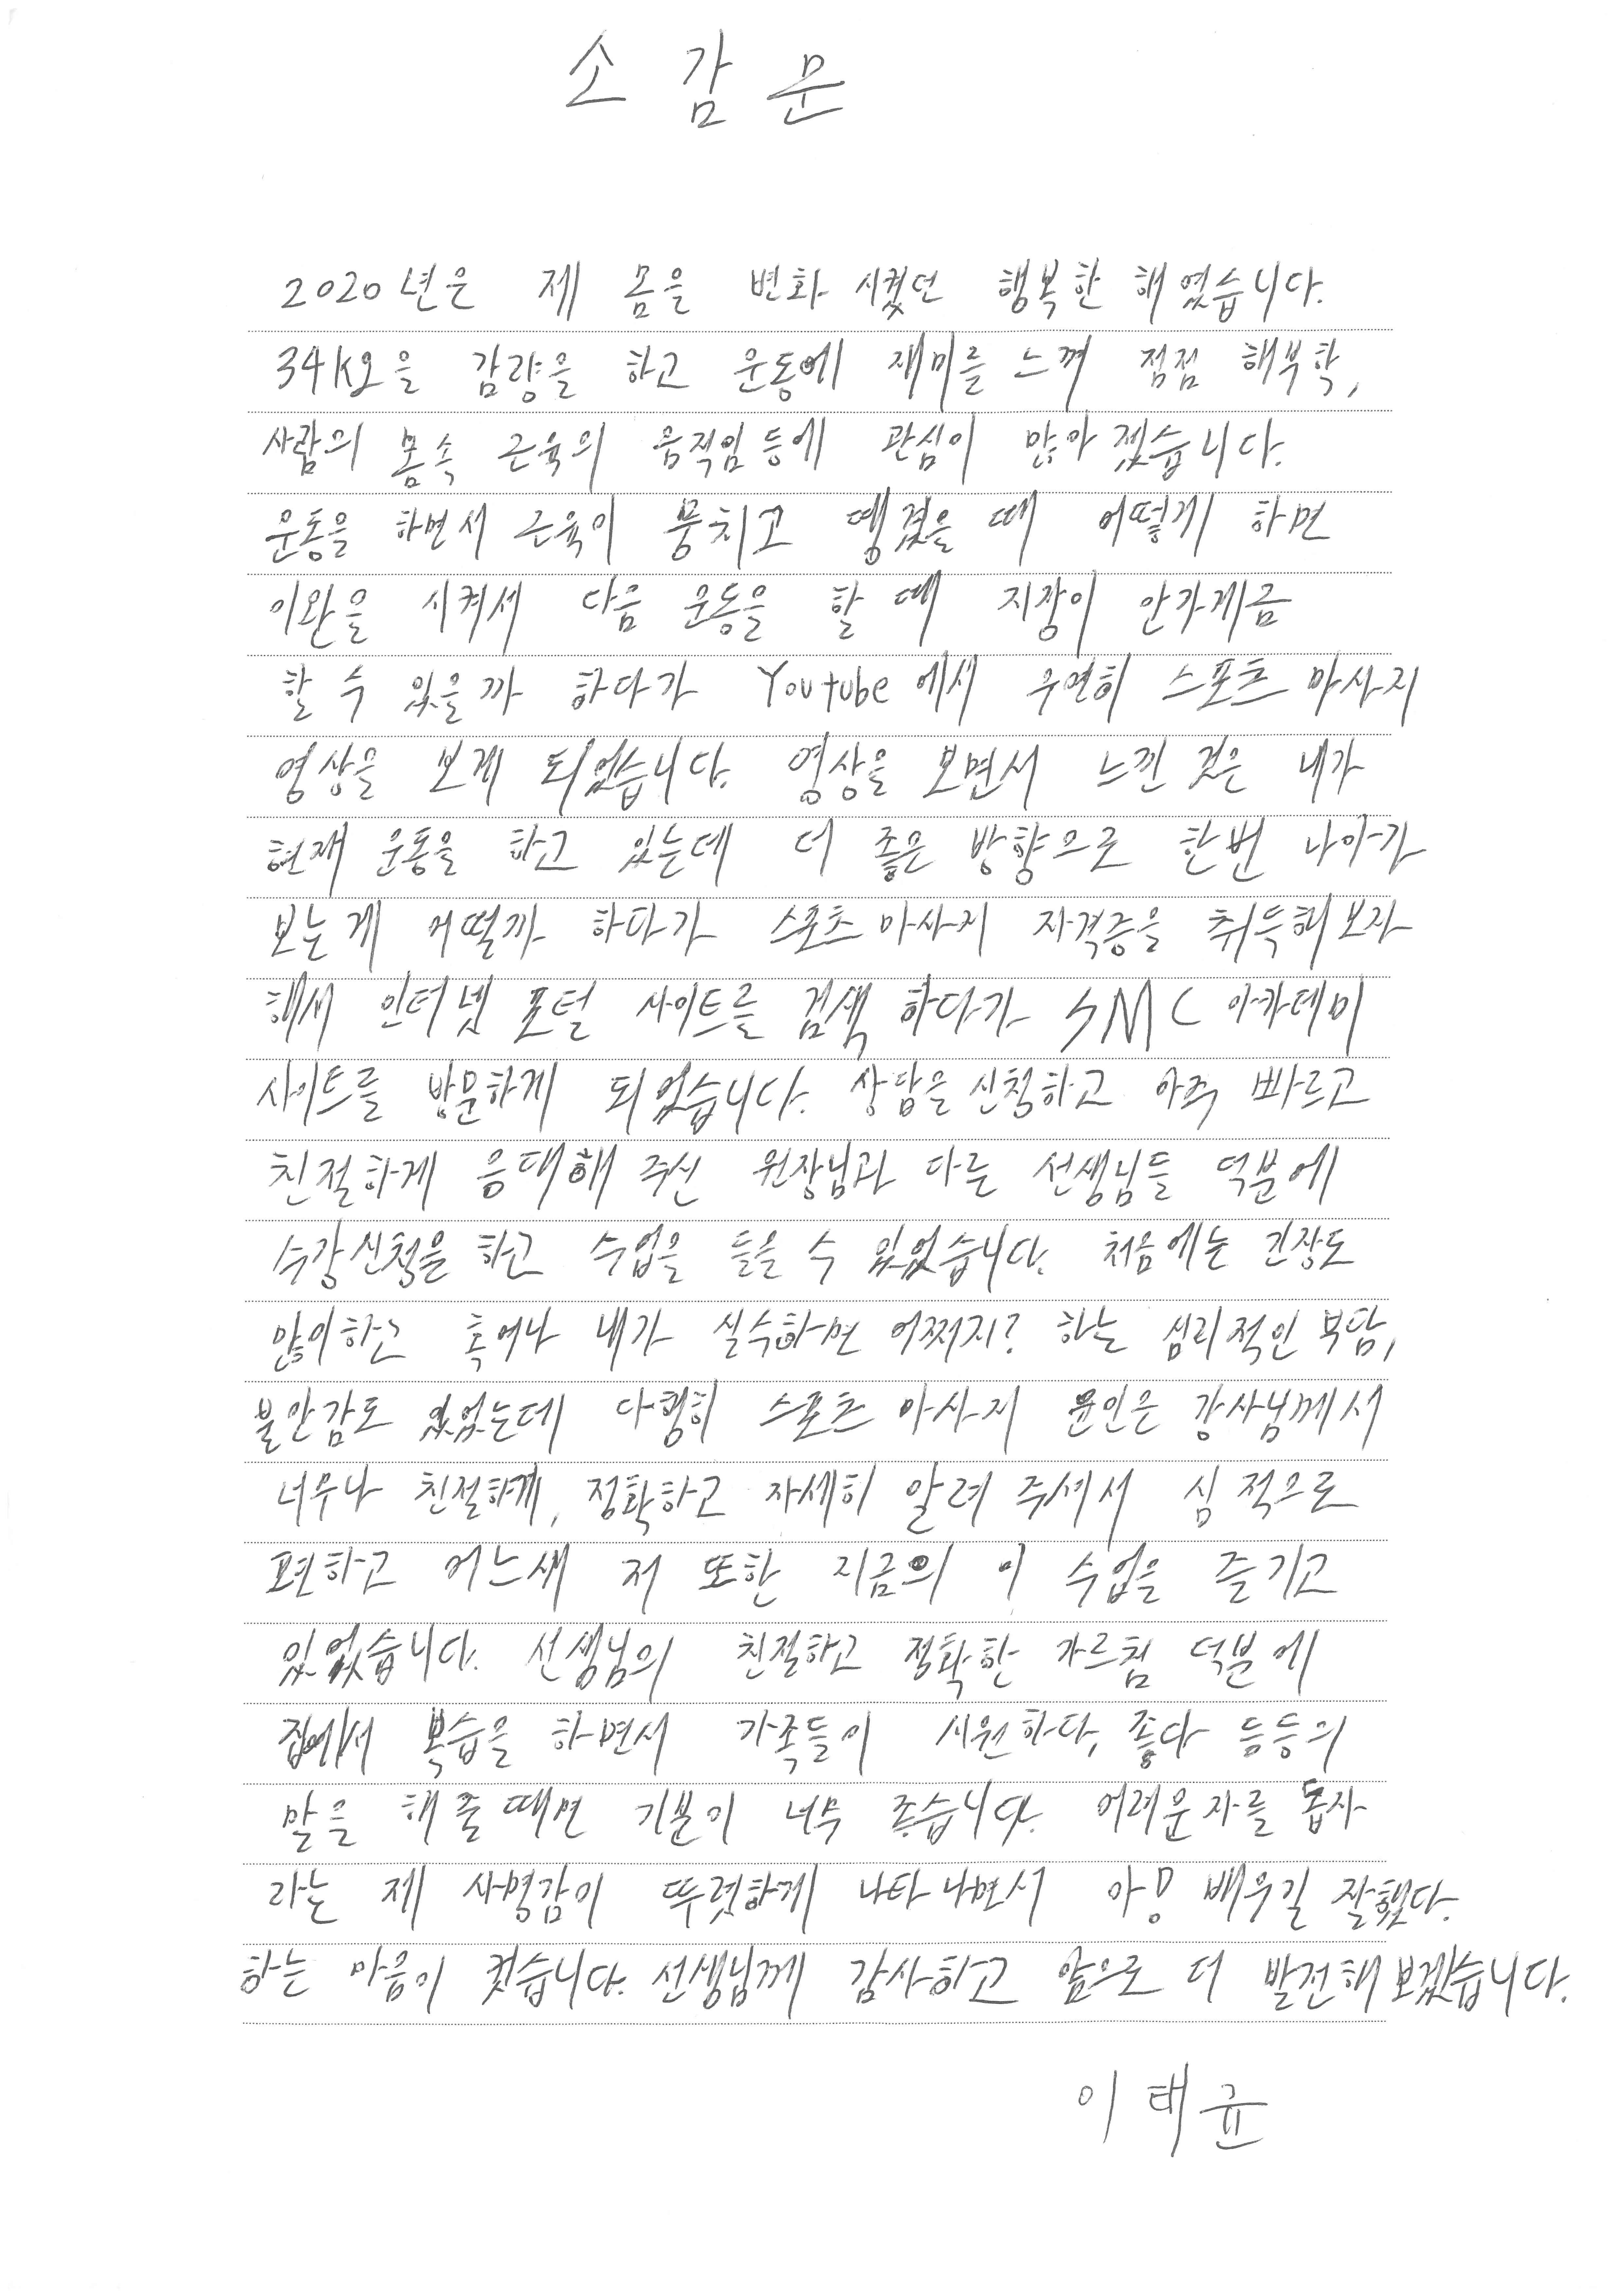 소감문
2020년은 제 몸을 변화 시켰던 행복한 해였습니다.
34kg을 감량을 하고 운동에 재미를 느껴 점점 해부학,
사람의 몸속 근육의 움직임 등에 관심이 많아졌습니다.
운동을 하면서 근육이 뭉치고 땡겼을 때 어떻게 하면
이완을 시켜서 다음 운동을 할 때 지장이 안가게금
할 수 있을까 하다가 Youtube에서 우연히 스포츠 마사지
영상을 보게 되었습니다. 영상을 보면서 느낀 것은 내가
현재 운동을 하고 있는데 더 좋은 방향으로 한번 나아가
보는게 어떨까 하다가 스포츠 마사지 자격증을 취득해보자
해서 인터넷 포털 사이트를 검색 하다가 SMC 아카데미
사이트를 방문하게 되었습니다. 상담을 신청하고 아주 빠르고
친절하게 응대해 주신 원장님과 다른 선생님들 덕분에
수강신청을 하고 수업을 들을 수 있었습니다. 처음에는 긴장도
많이하고 혹여나 내가 실수하면 어쩌지? 하는 심리적인 부담,
불안감도 있었는데 다행히 스포츠 마사지 윤인은 강사님께서
너무나 친절하게, 정확하고 자세히 알려 주셔서 심적으로
편하고 어느새 저 또한 지금의 이 수업을 즐기고
있었습니다. 선생님의 친절하고 정확한 가르침 덕분에
집에서 복습을 하면서 가족들이 시원하다, 좋다 등등의
말을 해줄때면 기분이 너무 좋습니다. 어려운자를 돕자
라는 제 사명감이 뚜렷하게 나타나면서 아! 배우길 잘했다.
하는 마음이 컸습니다. 선생님께 감사하고 앞으로 더 발전해보겠습니다.
이태윤